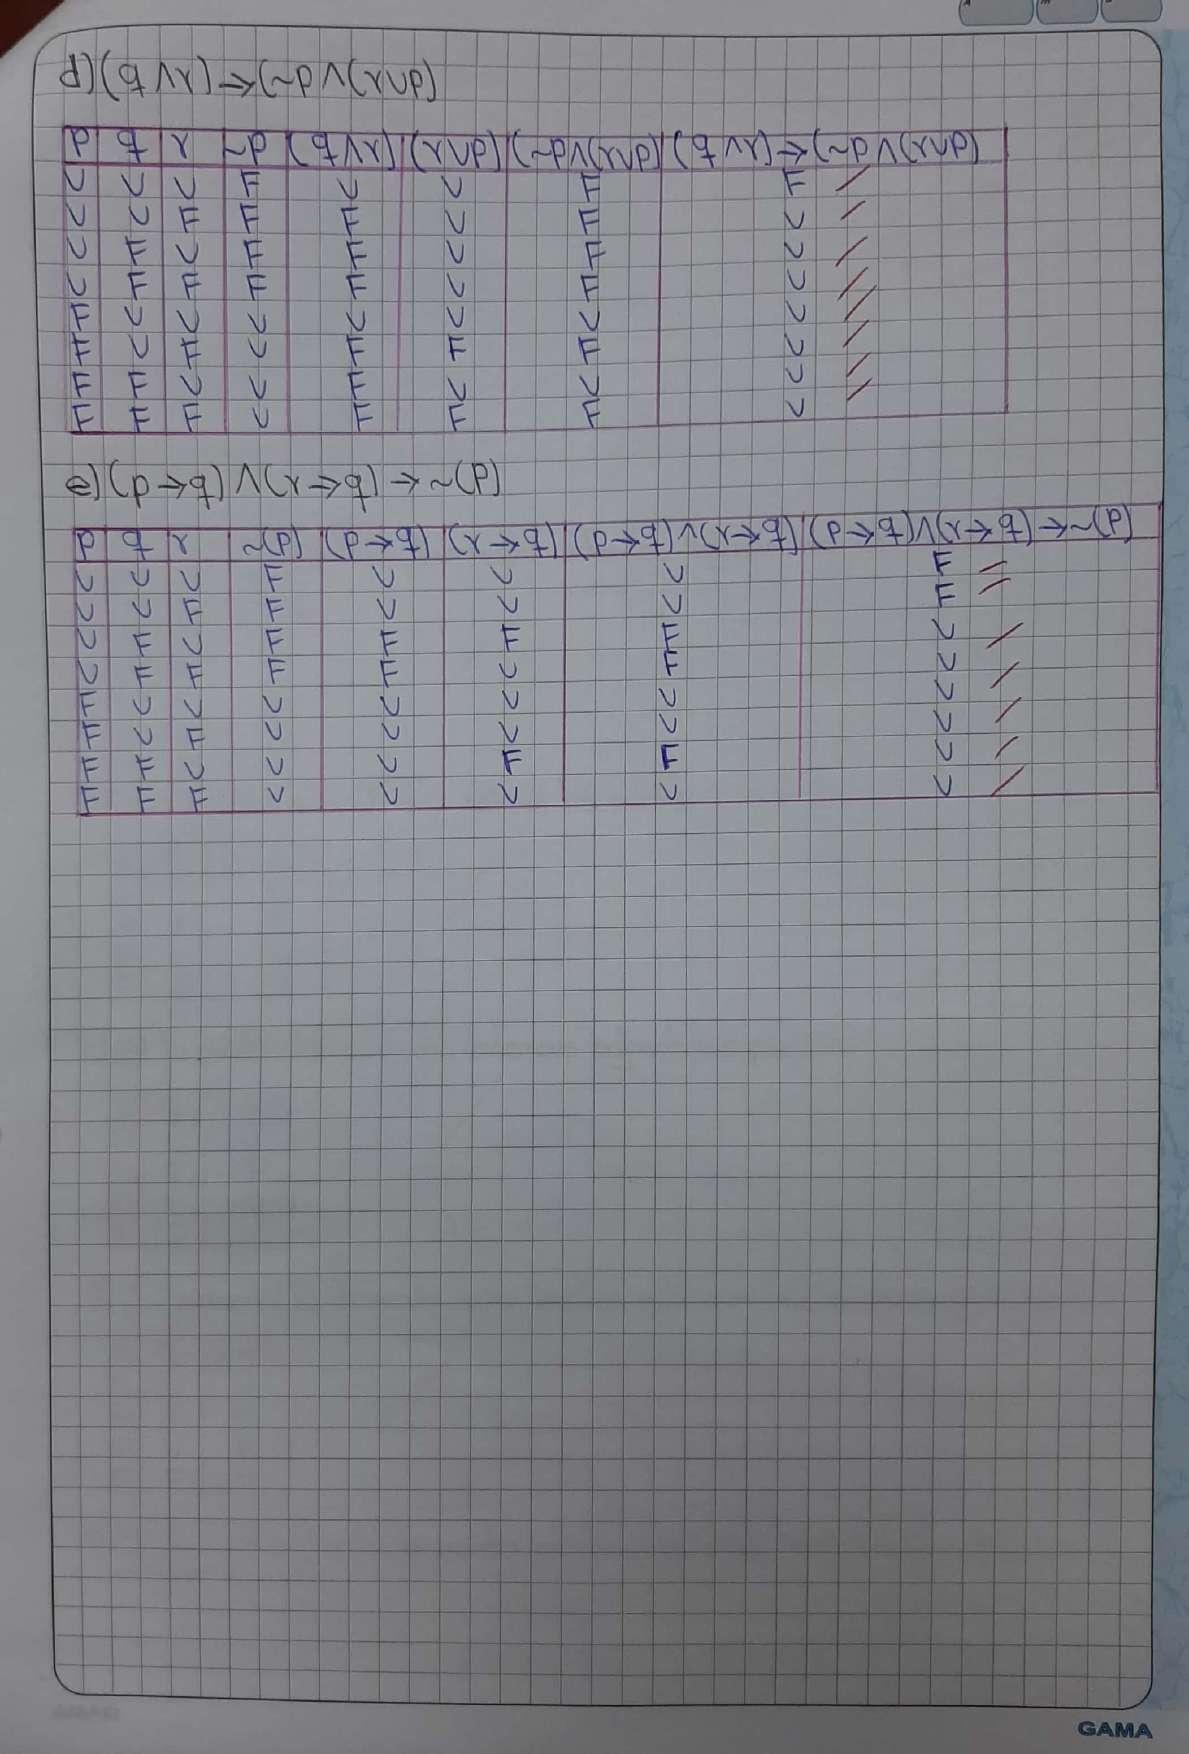 d) (q∧r)→(~p∧(p∨r)
p q r ~p (q∧r) (p∨r) (~p∧(p∨r) (q∧r)→(~p∧(p∨r)
V V V F V V F F
V V F F F V F V
V F V F F V F V
V F F F F V F V
F V V V V V V V
F V F V F F F V
F F V V F V V V
F F F V F F F V
e) (p→q)∧(r→q)→~(p)
p q r ~(p) (p→q) (r→q) (p→q)∧(r→q) (p→q)∧(r→q)→~(p)
V V V F V V V F
V V F F V V V F
V F V F F F F V
V F F F F V F V
F V V V V V V V
F V F V V V V V
F F V V V F F V
F F F V V V V V
GAMA